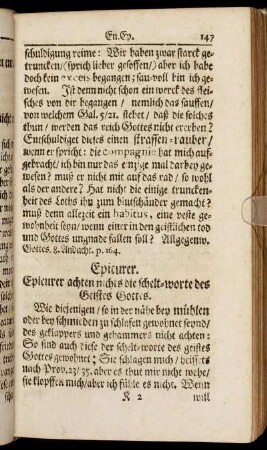 En. Ep. 147
schuldigung reime: Wir haben zwar starck ge-
truncken/ (sprich lieber gesoffen/) aber ich habe
doch kein excess begangen; sau-voll bin ich ge-
wesen. Ist denn nicht schon ein werck des flei-
sches von dir begangen / nemlich das sauffen/
von welchem Gal. 5/21. stehet / daß die solches
thun / werden das reich Gottes nicht ererben?
Entschuldiget dieses einen straffen-rauber/
wenn er spricht: die compagnie hat mich auf-
gebracht/ ich bin nur das einzige mal darbey ge-
wesen? muß er nicht mit auf das rad / so wohl
als der andere? Hat nicht die einige truncken-
heit des Loths ihn zum blutschänder gemacht?
muß denn allezeit ein habitus, eine veste ge-
wohnheit seyn/ wenn einer in den geistlichen tod
und Gottes ungnade fallen soll? Allgegenw.
Gottes. 8. Andacht. p. 164.
Epicurer.
Epicurer achten nichts die schelt-worte des
Geistes Gottes.
Wie diejenigen / so in der nähe bey mühlen
oder bey schmieden zu schlafen gewohnet seynd/
des geklappers und gehammers nicht achten:
So sind auch diese der schelt-worte des geistes
Gottes gewohnet; Sie schlagen mich/ heissets
nach Prov. 23/35. aber es thut mir nicht wehe/
sie klopffen mich/ aber ich fühle es nicht. Wenn
K 2 will